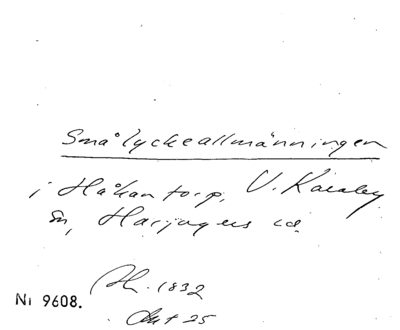 Smålyckeallmänningen
i Håkantorp, V. Karaby
sn, Harjagers hd.
Ah. 1832
Nr 9608.
Akt 25